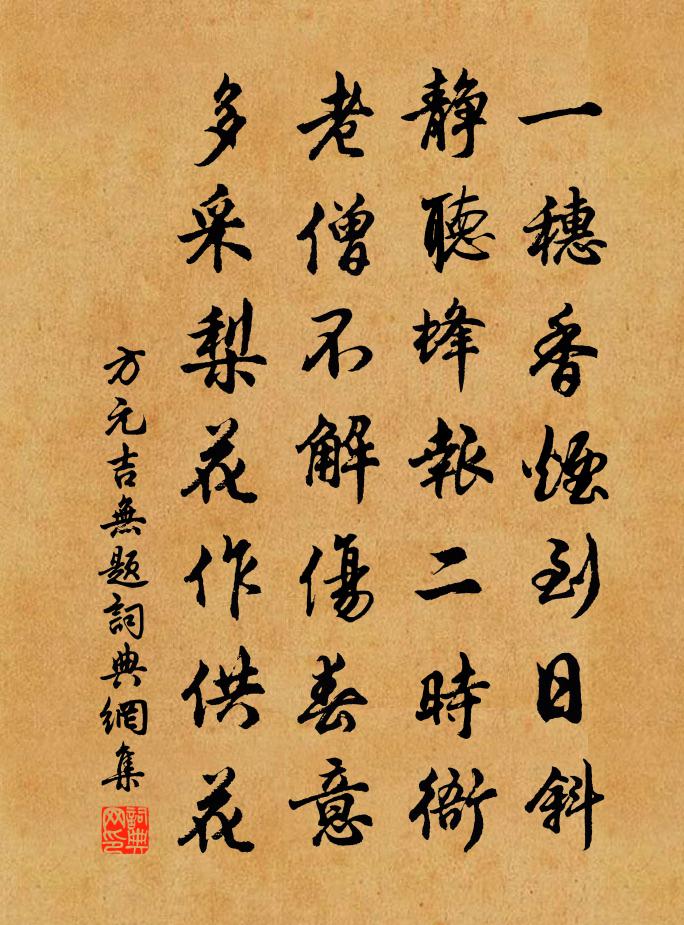 一穗香煙到日斜
静聽蜂報二時衙
老僧不解傷春意
多采梨花作供花
方元吉無題詞典網集
詞典网印